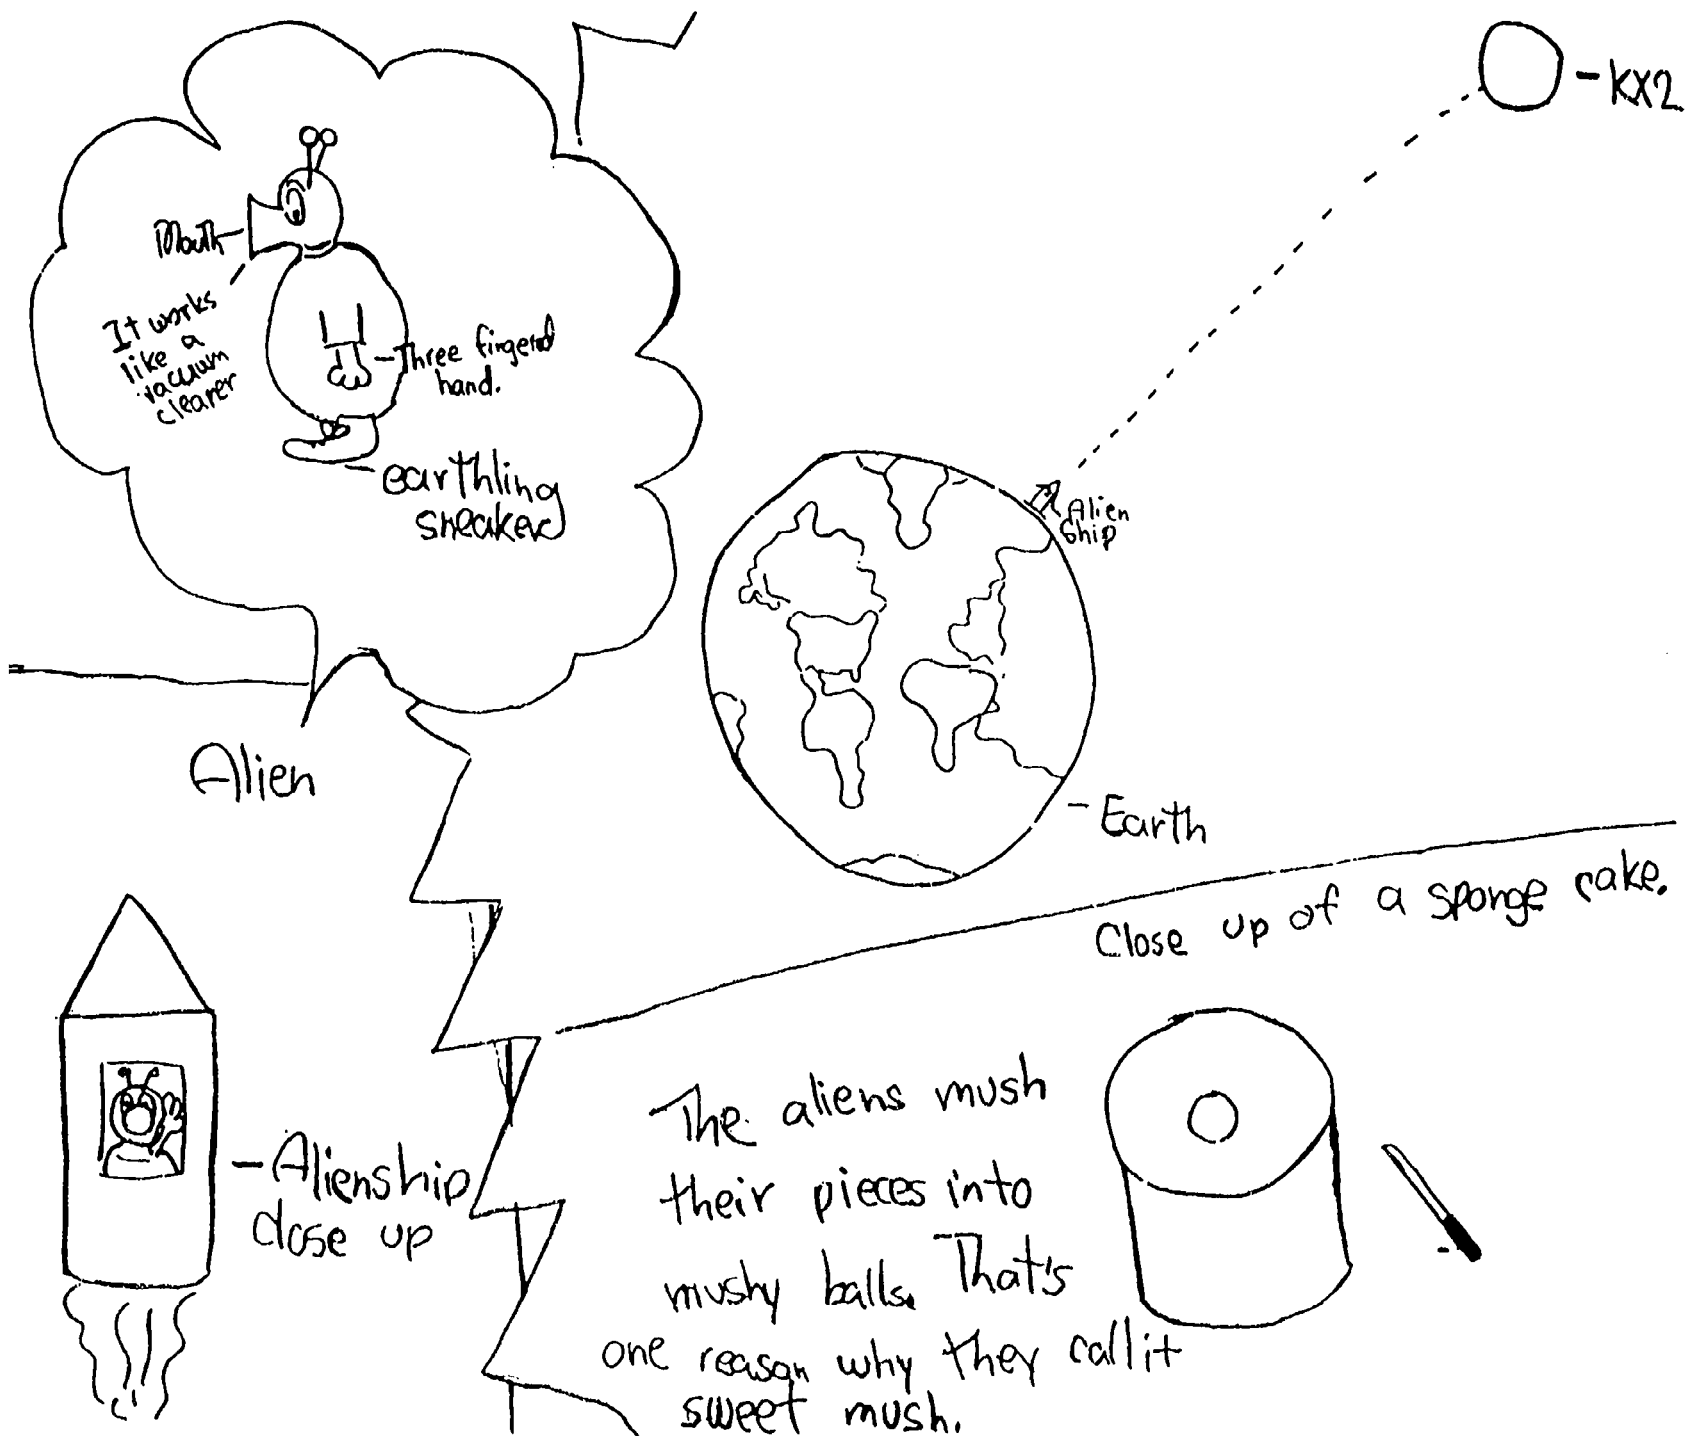 Mouth
It works
like a
vacuum
clearer
Three fingerd
hand.
earthling
sneaker
Alien
- KX2
Alien
Ship
- Earth
- Alienship
close up
Close up of a sponge cake.
The aliens mush
their pieces into
mushy balls. That's
one reason why they call it
sweet mush.